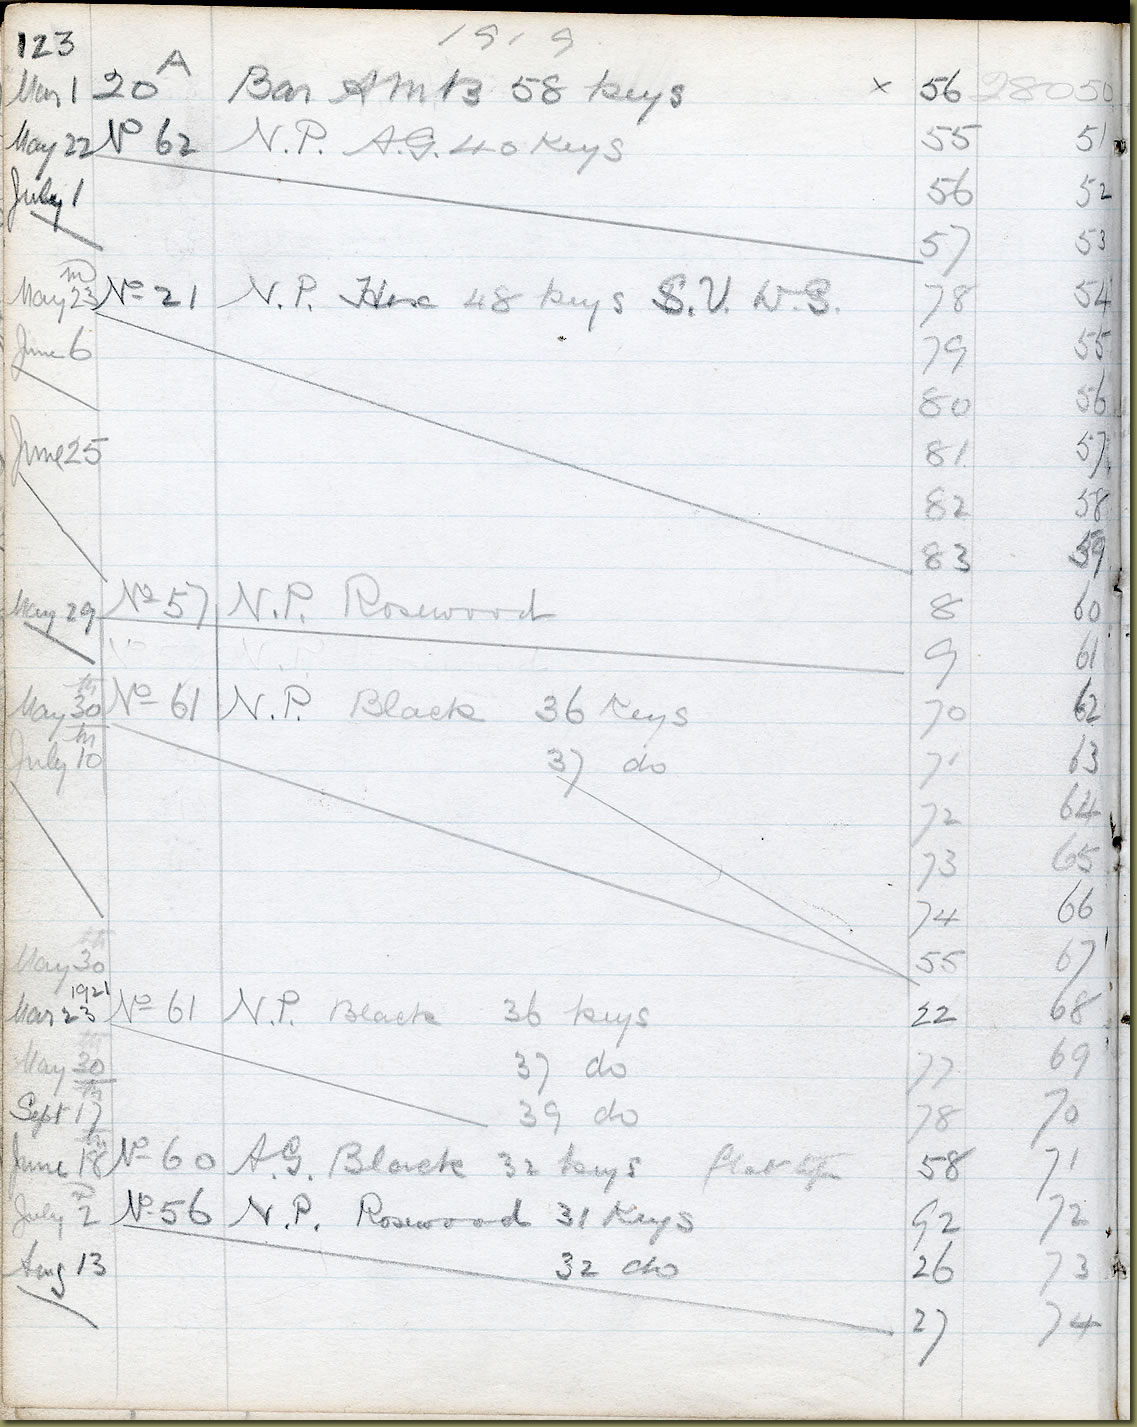 123 1919
Mar 1 20 A Bar AMB 58 keys × 56 28050
May 22 No 62 N.P. A.G. 40 Keys 55 51
July 1 56 52
57 53
May 23 No 21 N.P. Hex 48 keys S.V. W.S. 78 54
June 6 79 55
80 56
June 25 81 57
82 58
83 59
May 29 No 57 N.P. Rosewood 8 60
9 61
May 30th No 61 N.P. Black 36 Keys 70 62
July 10th 37 do 71 63
72 64
73 65
74 66
May 30th 55 67
1921
Mar 23 No 61 N.P. Black 36 keys 22 68
May 30th 37 do 77 69
Sept 17th 39 do 78 70
June 18th No 60 A.G. Black 32 keys flat 58 71
July 2 No 56 N.P. Rosewood 31 Keys 92 72
Aug 13 32 do 26 73
27 74